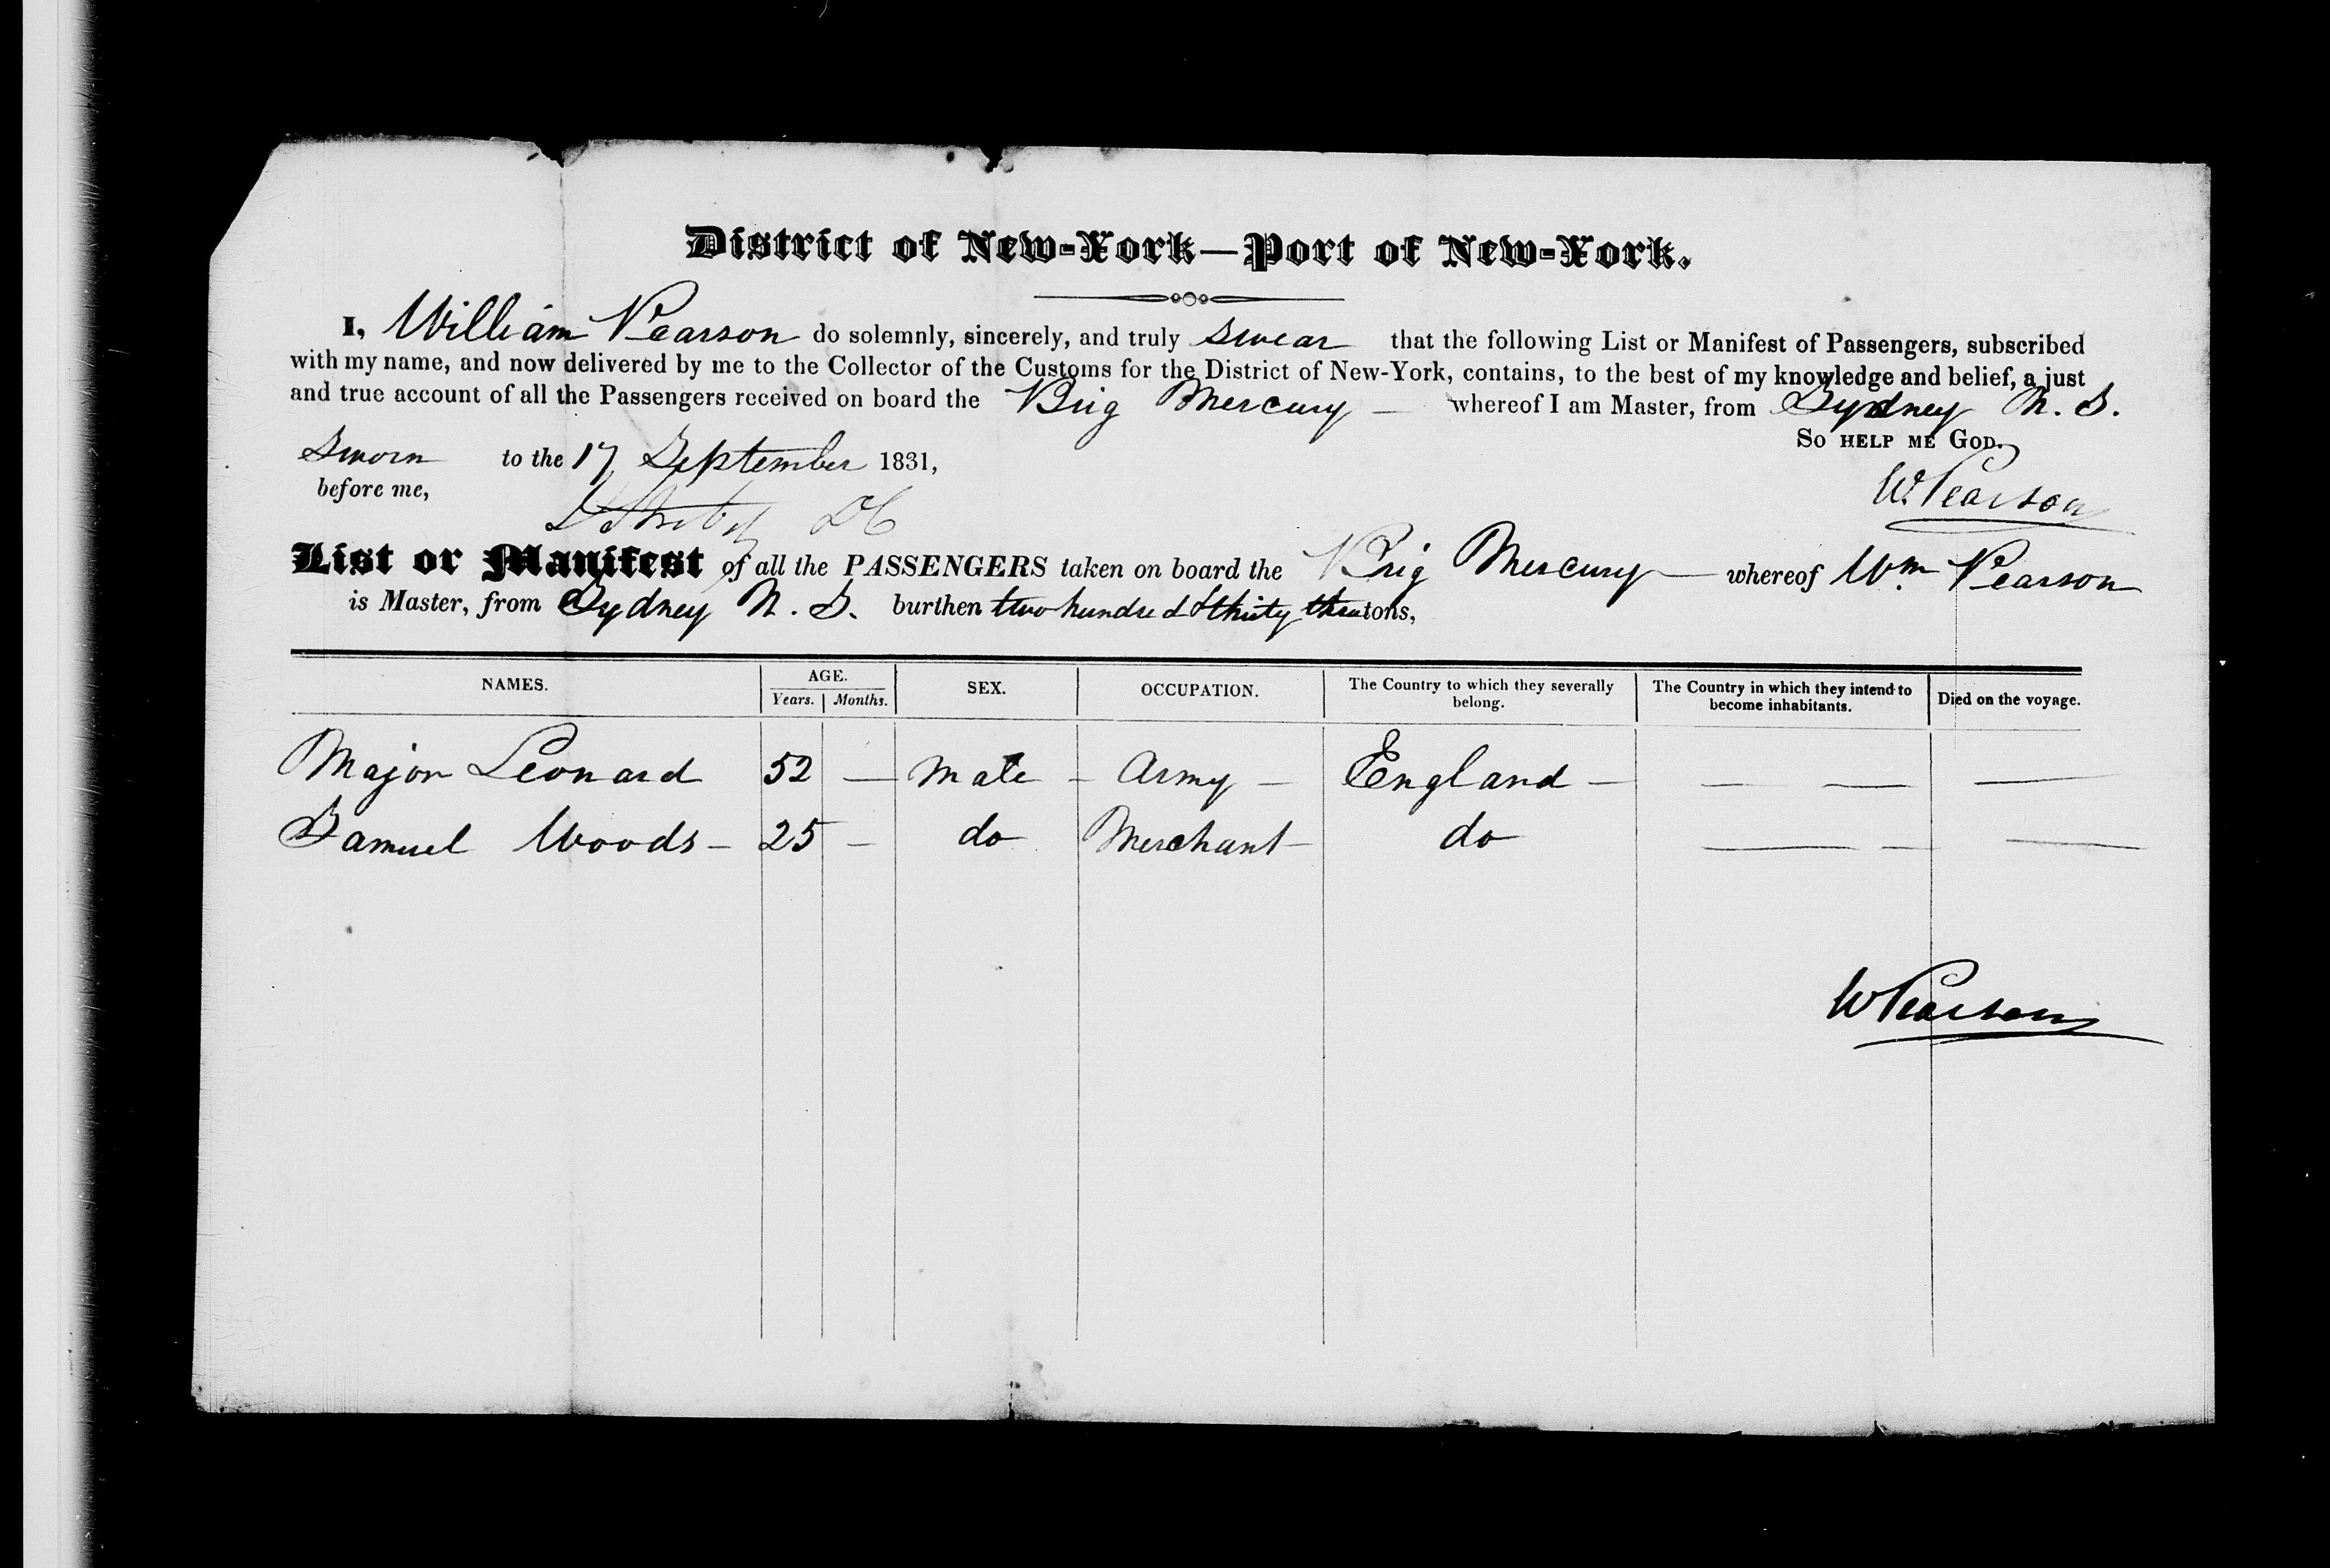 District of New-York—Port of New-York.
I, William Pearson do solemnly, sincerely, and truly swear that the following List or Manifest of Passengers, subscribed
with my name, and now delivered by me to the Collector of the Customs for the District of New-York, contains, to the best of my knowledge and belief, a just
and true account of all the Passengers received on board the Brig Mercury — whereof I am Master, from Sydney N. S.
So help me God.
Sworn to the 17 September 1831,
before me,
W. Pearson
List or Manifest of all the PASSENGERS taken on board the Brig Mercury — whereof Wm Pearson
is Master, from Sydney N. S. burthen two hundred & thirty three tons,
NAMES. AGE. Years. Months. SEX. OCCUPATION. The Country to which they severally belong. The Country in which they intend to become inhabitants. Died on the voyage.
Major Leonard 52 — Male — Army — England — — — —
Samuel Woods — 25 — do Merchant — do — — —
W Pearson